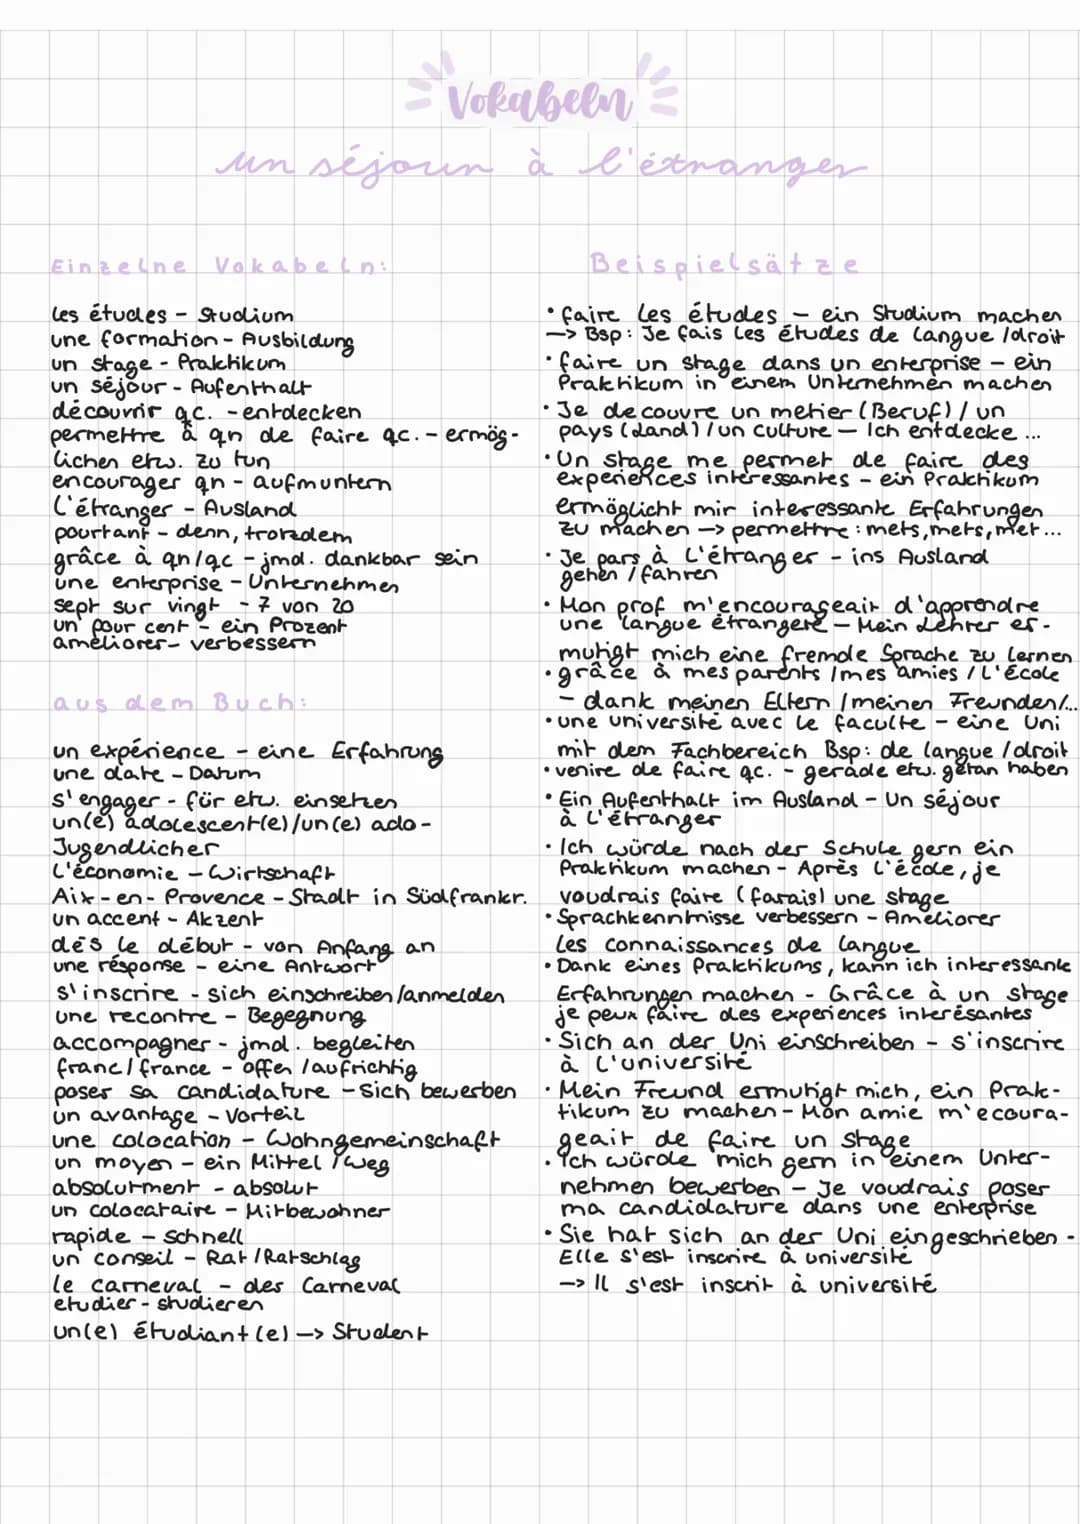 Vokabeln
un séjour à l'étranger
Einzelne Vokabeln:
les études - Studium
une formation - Ausbildung
un stage - Praktikum
un séjour - Aufenthalt
découvrir qc. - entdecken
permettre à qn de faire qc. - ermög-
lichen etw. zu tun
encourager qn - aufmuntern
L'étranger - Ausland
pourtant - denn, trotzdem
grâce à qn/qc - jmd. dankbar sein
une enterprise - Unternehmen
sept sur vingt - 7 von 20
un pour cent - ein Prozent
améliorer - verbessern
aus dem Buch:
un expérience - eine Erfahrung
une date - Datum
s'engager - für etw. einsetzen
un(e) adolescent(e)/un(e) ado -
Jugendlicher
L'économie - Wirtschaft
Aix-en-Provence - Stadt in Südfrankr.
un accent - Akzent
dés le début - von Anfang an
une résponse - eine Antwort
s'inscrire - sich einschreiben/anmelden
une recontre - Begegnung
accompagner - jmd. begleiten
franc/france - offen/aufrichtig
poser sa candidature - Sich bewerben
un avantage - Vorteil
une colocation - Wohngemeinschaft
un moyen - ein Mittel/Weg
absolutment - absolut
un colocataire - Mitbewohner
rapide - schnell
un conseil - Rat/Ratschlag
le carneval - des Carneval
etudier - studieren
un(e) étudiant(e) -> Student
Beispielsätze
• faire les études - ein Studium machen
-> Bsp: Je fais les études de langue/droit
• faire un stage dans un enterprise - ein
Praktikum in einem Unternehmen machen
• Je decouvre un metier (Beruf) / un
pays (Land) / un culture - Ich entdecke ...
• Un stage me permet de faire des
experiences intéressantes - ein Praktikum
ermöglicht mir interessante Erfahrungen
zu machen -> permettre: mets, mets, met ...
• Je pars à L'étranger - ins Ausland
gehen / fahren
• Mon prof m'encourageait d'apprendre
une langue étrangere - Mein Lehrer er-
mutigt mich eine fremde Sprache zu lernen
• grâce à mes parents /mes amies / L'école
- dank meinen Eltern / meinen Freunden/...
• une université avec le faculte - eine Uni
mit dem Fachbereich Bsp: de langue / droit
• venire de faire qc. - gerade etw. getan haben
• Ein Aufenthalt im Ausland - Un séjour
à L'étranger
• Ich würde nach der Schule gern ein
Praktikum machen - Après l'école, je
voudrais faire (farais) une stage
• Sprachkenntnisse verbessern - Améliorer
les connaissances de langue
• Dank eines Praktikums, kann ich interessante
Erfahrungen machen - Grâce à un stage
je peux faire des experiences intéresantes
• Sich an der Uni einschreiben - s'inscrire
à l'université
• Mein Freund ermutigt mich, ein Prak-
tikum zu machen - Mon amie m'ecoura-
geait de faire un stage
• Ich würde mich gern in einem Unter-
nehmen bewerben - Je voudrais poser
ma candidature dans une enterprise
• Sie hat sich an der Uni eingeschrieben -
Elle s'est inscrire à université
-> Il s'est inscrit à université